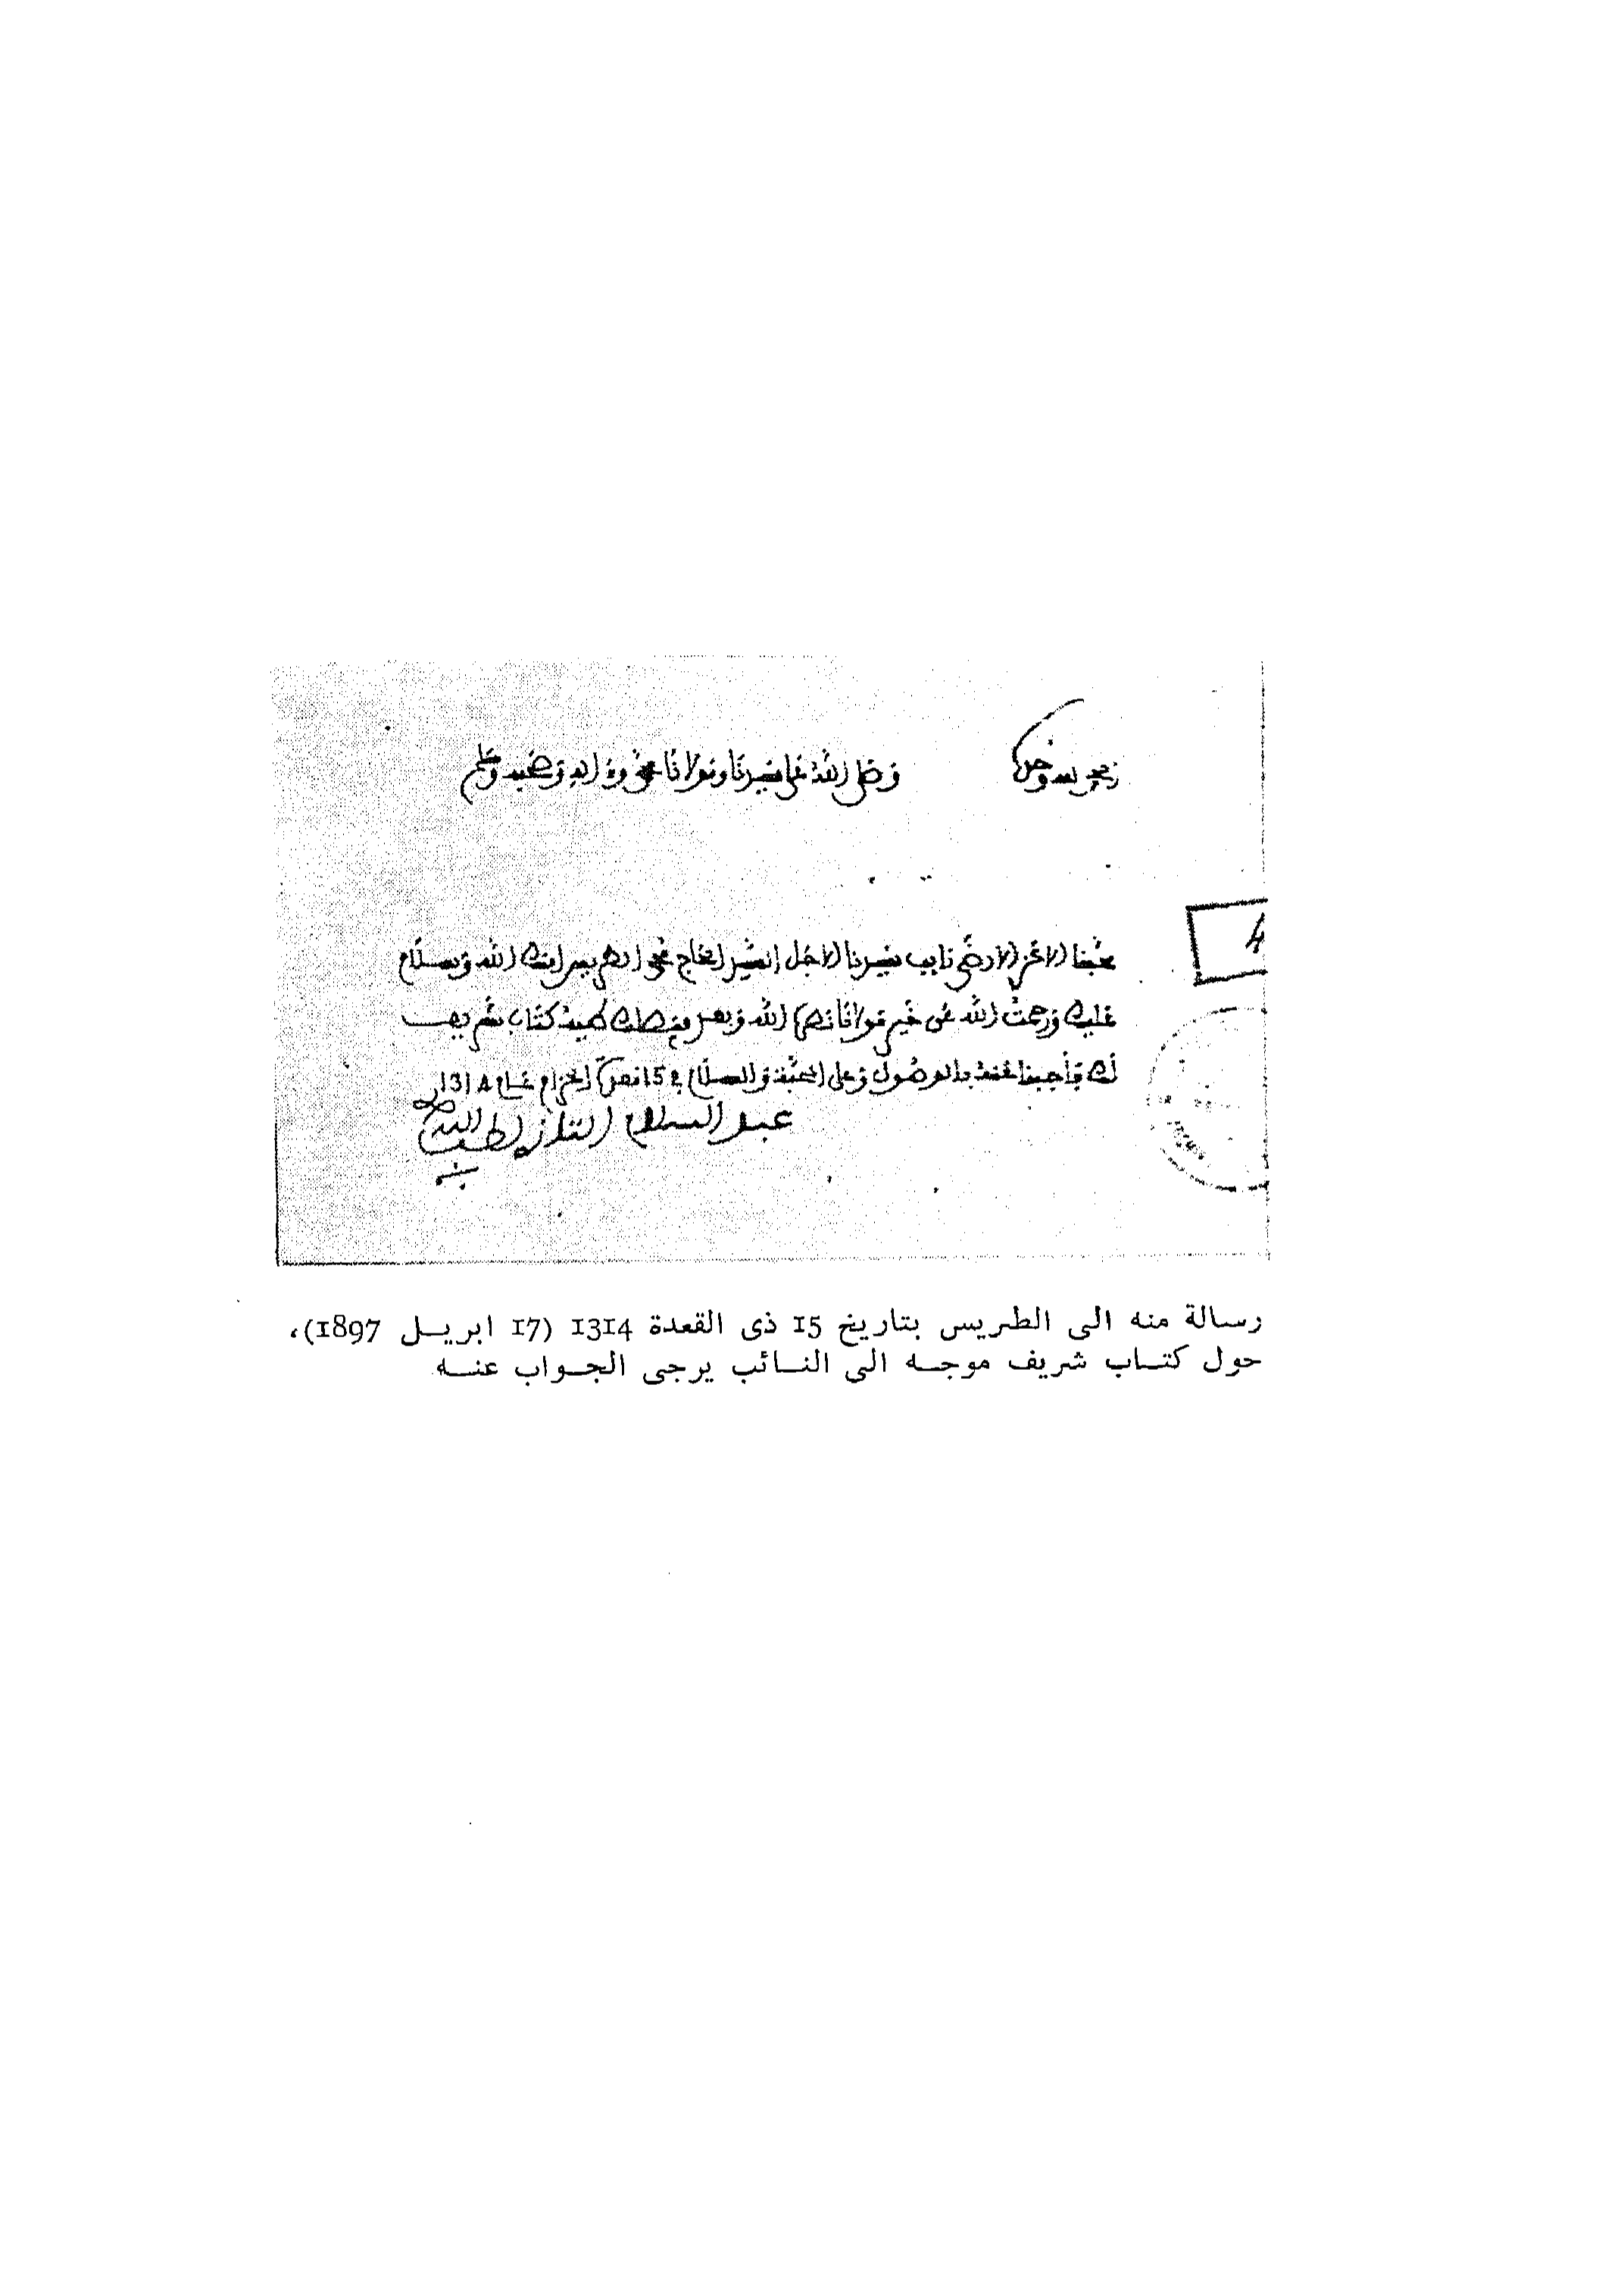 الحمد لله وحده
وصلى الله على سيدنا ومولانا محمد وءاله وصحبه وسلم
4
محبنا الاعز الارضى نايب سيدنا الاجل السيد الحاج محمد امنك الله وسلام
عليك ورحمت الله عن خير مولانا نصره الله وبعد فيصلك طيه كتاب شريف
لك فأجبنا عنه بالوصول وعلى المحبة والسلام في 15 قعدة الحرام عام 1314
عبد السلام التازي لطف الله به
رسالة منه الى الطريس بتاريخ 15 ذى القعدة 1314 (17 ابريل 1897)،
حول كتاب شريف موجه الى النائب يرجى الجواب عنه